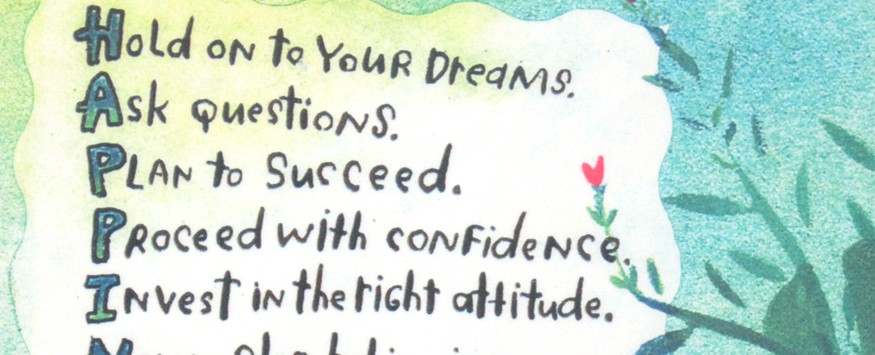 Hold on to Your Dreams.
Ask questions.
Plan to Succeed.
Proceed with confidence.
Invest in the right attitude.